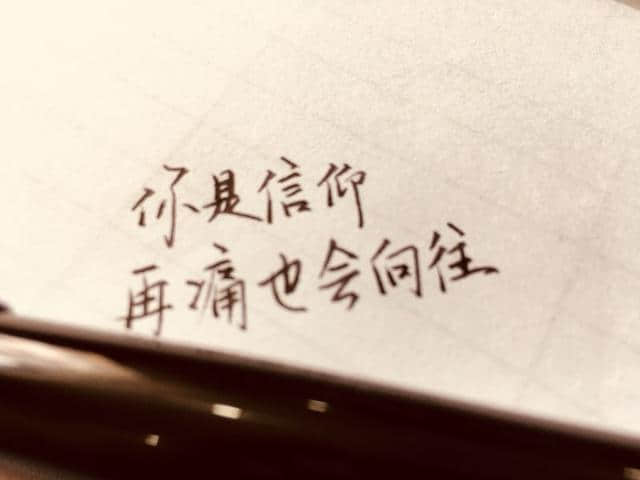 你是信仰
再痛也会向往